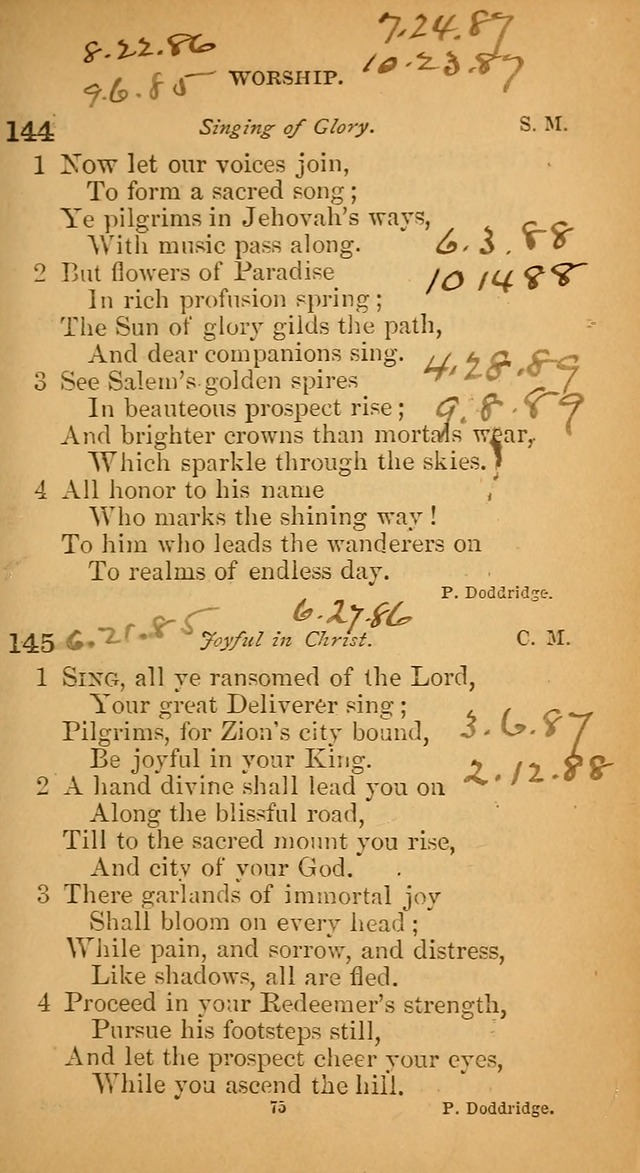 8.22.86 7.24.87
9.6.85 WORSHIP. 10.23.87
144 Singing of Glory. S. M.
1 Now let our voices join,
To form a sacred song;
Ye pilgrims in Jehovah's ways,
With music pass along. 6.3.88
2 But flowers of Paradise 10 14 88
In rich profusion spring;
The Sun of glory gilds the path,
And dear companions sing. 4.28.89
3 See Salem's golden spires
In beauteous prospect rise; 9.8.89
And brighter crowns than mortals wear,
Which sparkle through the skies.
4 All honor to his name
Who marks the shining way!
To him who leads the wanderers on
To realms of endless day.
P. Doddridge.
6.27.86
145 6.21.85 Joyful in Christ. C. M.
1 SING, all ye ransomed of the Lord,
Your great Deliverer sing;
Pilgrims, for Zion's city bound, 3.6.87
Be joyful in your King.
2.12.88
2 A hand divine shall lead you on
Along the blissful road,
Till to the sacred mount you rise,
And city of your God.
3 There garlands of immortal joy
Shall bloom on every head;
While pain, and sorrow, and distress,
Like shadows, all are fled.
4 Proceed in your Redeemer's strength,
Pursue his footsteps still,
And let the prospect cheer your eyes,
While you ascend the hill.
75 P. Doddridge.